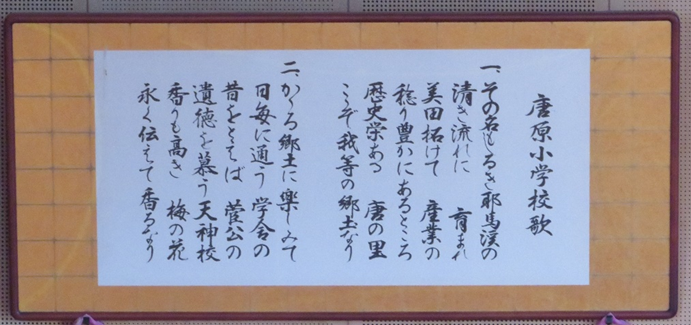 唐原小学校歌
一、その名もしるき耶馬渓の
清き流れに 育まれ
美田拓けて 産業の
稔り豊かにあるところ
歴史学ある 唐の里
こゝぞ我等の郷土なり
二、かゝる郷土に楽しみて
日毎に通う 学舎の
昔をとえば 菅公の
遺徳を慕う 天神校
香りも高き 梅の花
永く伝えて香るなり